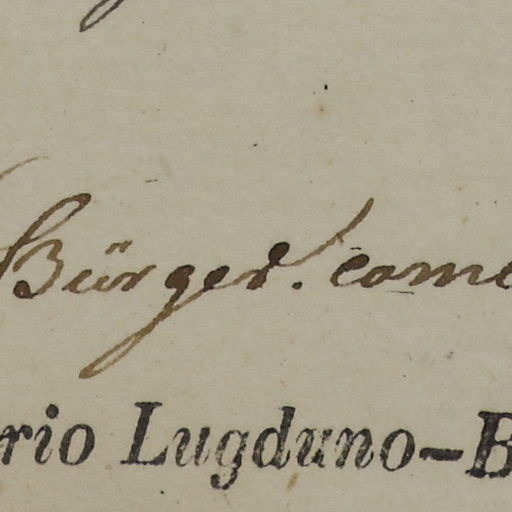 Bürger. come
rio Lugduno-B